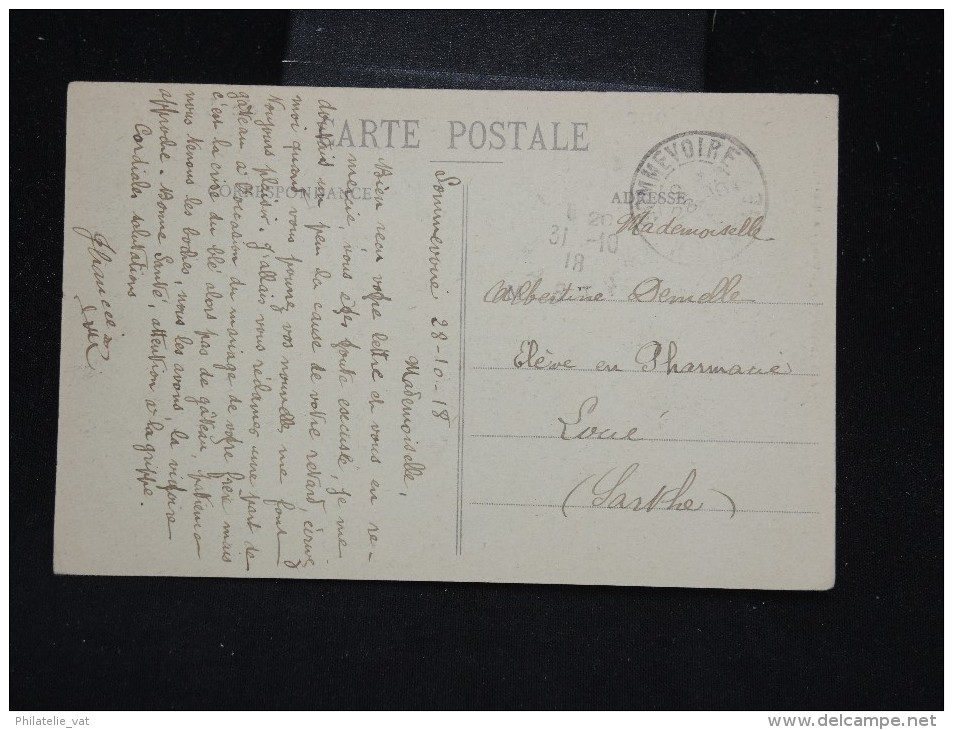 CARTE POSTALE
CORRESPONDANCE
ADRESSE
SOMMEVOIRE
6 20
31 -10
18
Mademoiselle
Albertine Demelle
Elève en Pharmacie
Loué
(Sarthe)
Sommevoire 28-10-18
Mademoiselle,
Bien reçu votre lettre et vous en re-
mercie, vous êtes toute excusée, je me
doutais un peu la cause de votre retard, écrivez
moi quand vous pourrez vos nouvelles me font
toujours plaisir. J'allais vous réclamer une part de
gâteau à l'occasion du mariage de votre frère mais
c'est la crise du blé alors pas de gâteau, patience
nous tenons les boches, nous les avons, la victoire
approche. Bonne Santé, attention à la grippe.
Cordiales salutations
Philatelie_vat
www.delcampe.net